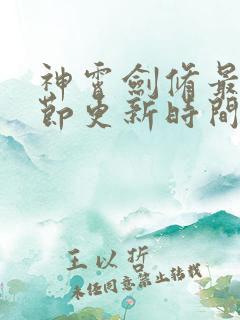 神霄劍脩最
節更新時間
王以哲
未经同意禁止转载